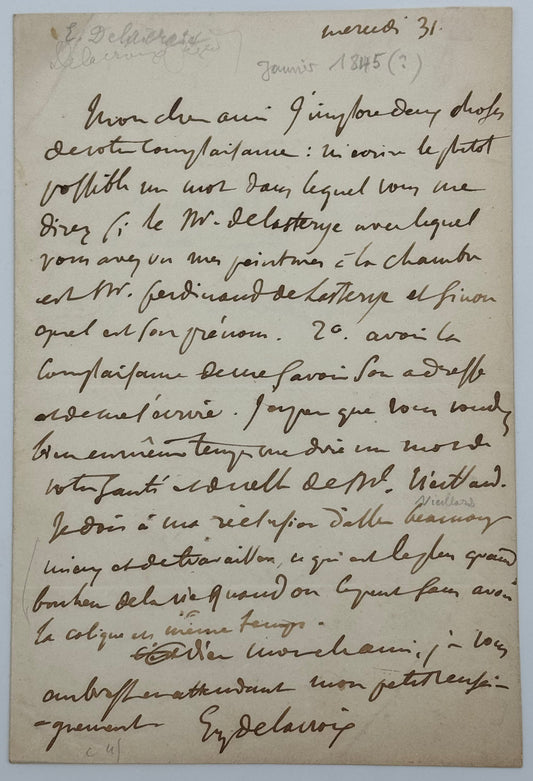 E. Delacroix
Delacroix
mercredi 31.
Janvier 1845 (?)
Mon cher ami J'implore deux choses
de votre complaisance : m'ecrire le plutot
possible un mot dans lequel vous me
direz si le Mr. de Lasterye avec lequel
vous avez vu mes peintures à la chambre
est Mr. ferdinand de Lasterye et sinon
quel est son prénom. 2°. avoir la
complaisance de me savoir son adresse
et de me l'écrire. J'espere que vous voudrez
bien en même temps me dire un mot de
votre santé et de celle de Mr. Vieillard.
Vieillard
Je dois à ma réclusion d'aller beaucoup
mieux et de travailler, ce qui est le plus grand
bonheur de la vie quand on le peut sans avoir
la colique en même temps.
adieu mon cher ami, je vous
embrasse en attendant mon petit rensei-
-gnement Eug Delacroix